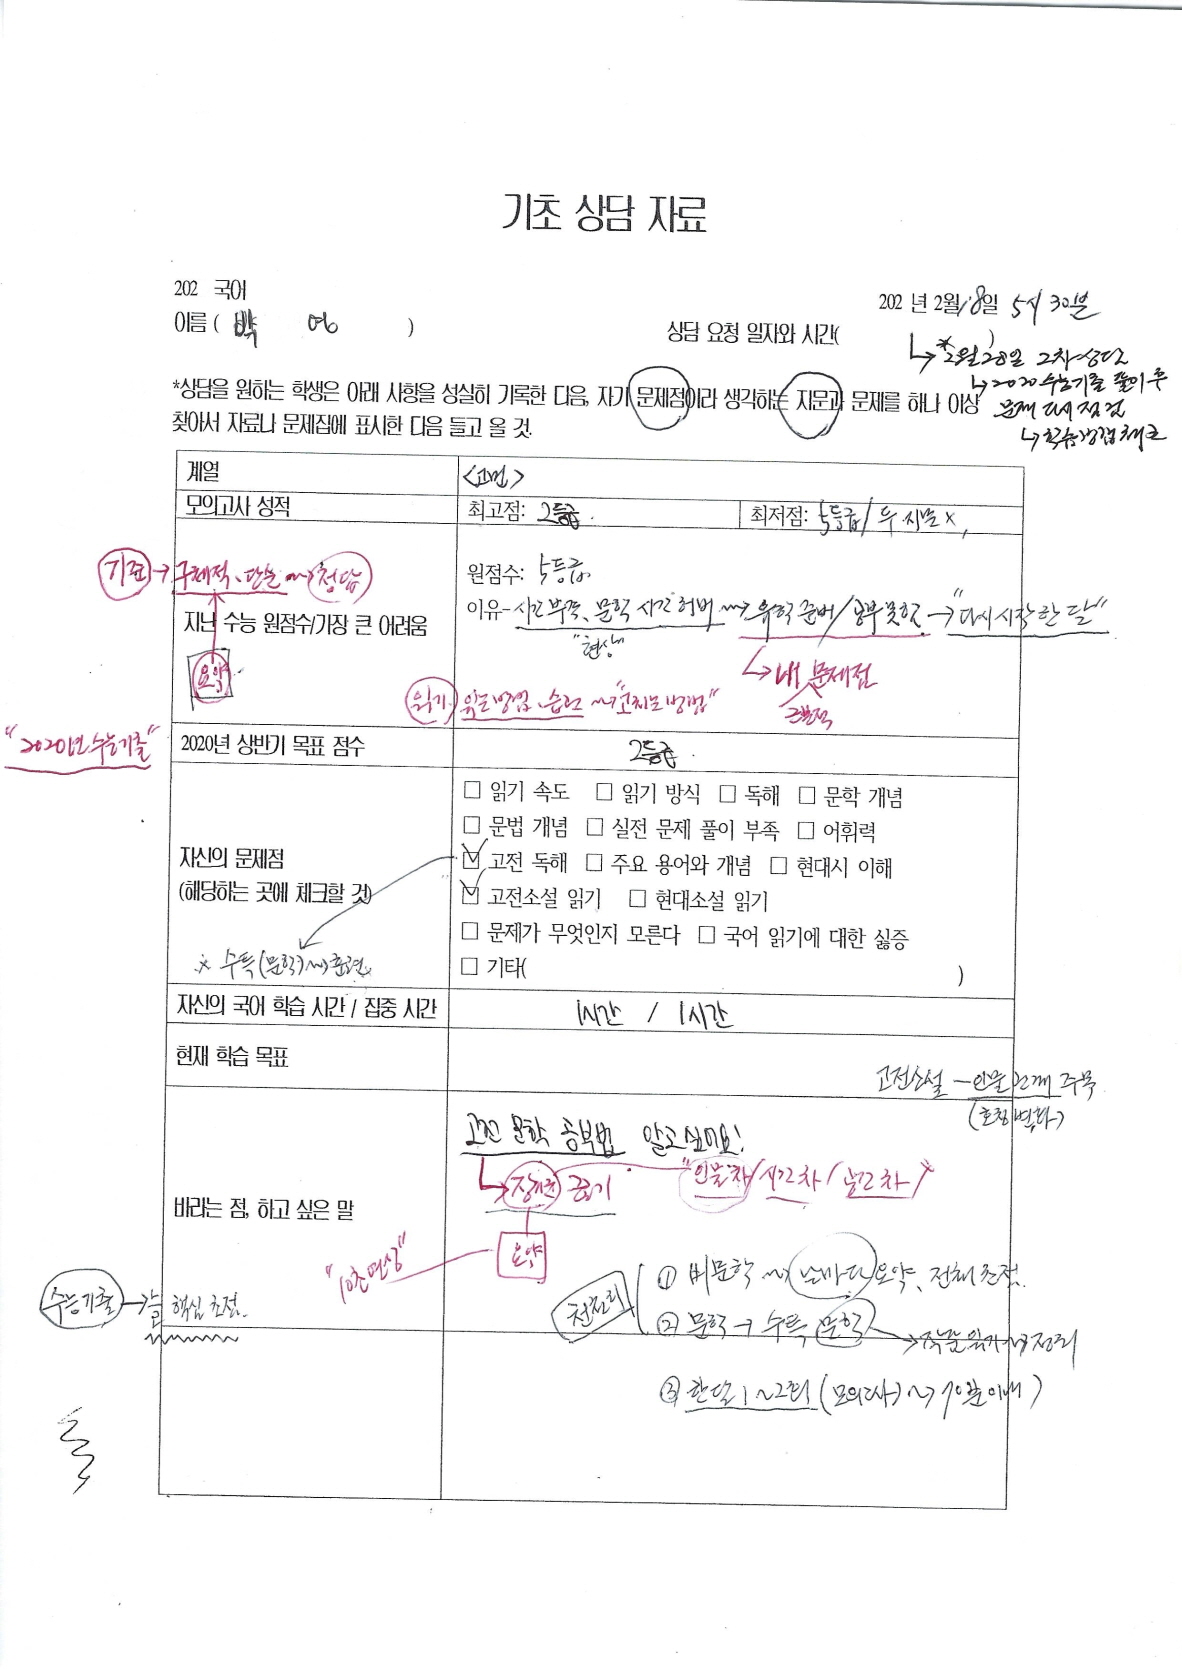 기초 상담 자료
202 국어
202 년 2월 18일 5시 30분
이름 ( 박 여 )
상담 요청 일자와 시간( )
*2월 28일 2차 상담
2020 수능기출 풀이 후
문제 다시 점검
학습방법 체크
*상담을 원하는 학생은 아래 사항을 성실히 기록한 다음, 자기 문제점이라 생각하는 지문과 문제를 하나 이상
찾아서 자료나 문제집에 표시한 다음 들고 올 것.
계열 <고민>
모의고사 성적 최고점: 2등급 최저점: 5등급/ 두 지문 x
기준 → 구체적, 단순 정답
원점수: 5등급
지난 수능 원점수/가장 큰 어려움
이유- 시간부족, 문학 시간 허비 유학준비/공부못함 → "다시 시작 한 달"
"현상"
요약
내 문제점
읽기 읽는방법, 습관 "고치는 방법"
"2020년 수능기출"
2020년 상반기 목표 점수 2등급
□ 읽기 속도 □ 읽기 방식 □ 독해 □ 문학 개념
□ 문법 개념 □ 실전 문제 풀이 부족 □ 어휘력
자신의 문제점
(해당하는 곳에 체크할 것)
☑ 고전 독해 □ 주요 용어와 개념 □ 현대시 이해
☑ 고전소설 읽기 □ 현대소설 읽기
□ 문제가 무엇인지 모른다 □ 국어 읽기에 대한 싫증
□ 기타( )
※ 수특(문학) 훈련
자신의 국어 학습 시간 / 집중 시간 1시간 / 1시간
현재 학습 목표
고전소설 - 인물 관계 주목
(호칭 변화)
고전 문학 공부법 알고싶어요!
장면 끊기 "인물차/시간차/공간차"
바라는 점, 하고 싶은 말
요약
"10초 연상"
① 비문학 날마다 요약, 전체 초점.
수능기출 → 글 핵심 초점.
② 문학 → 수특 문학 → 작품 읽기 정리
③ 한달 1~2회 (모의고사) 70분 이내)